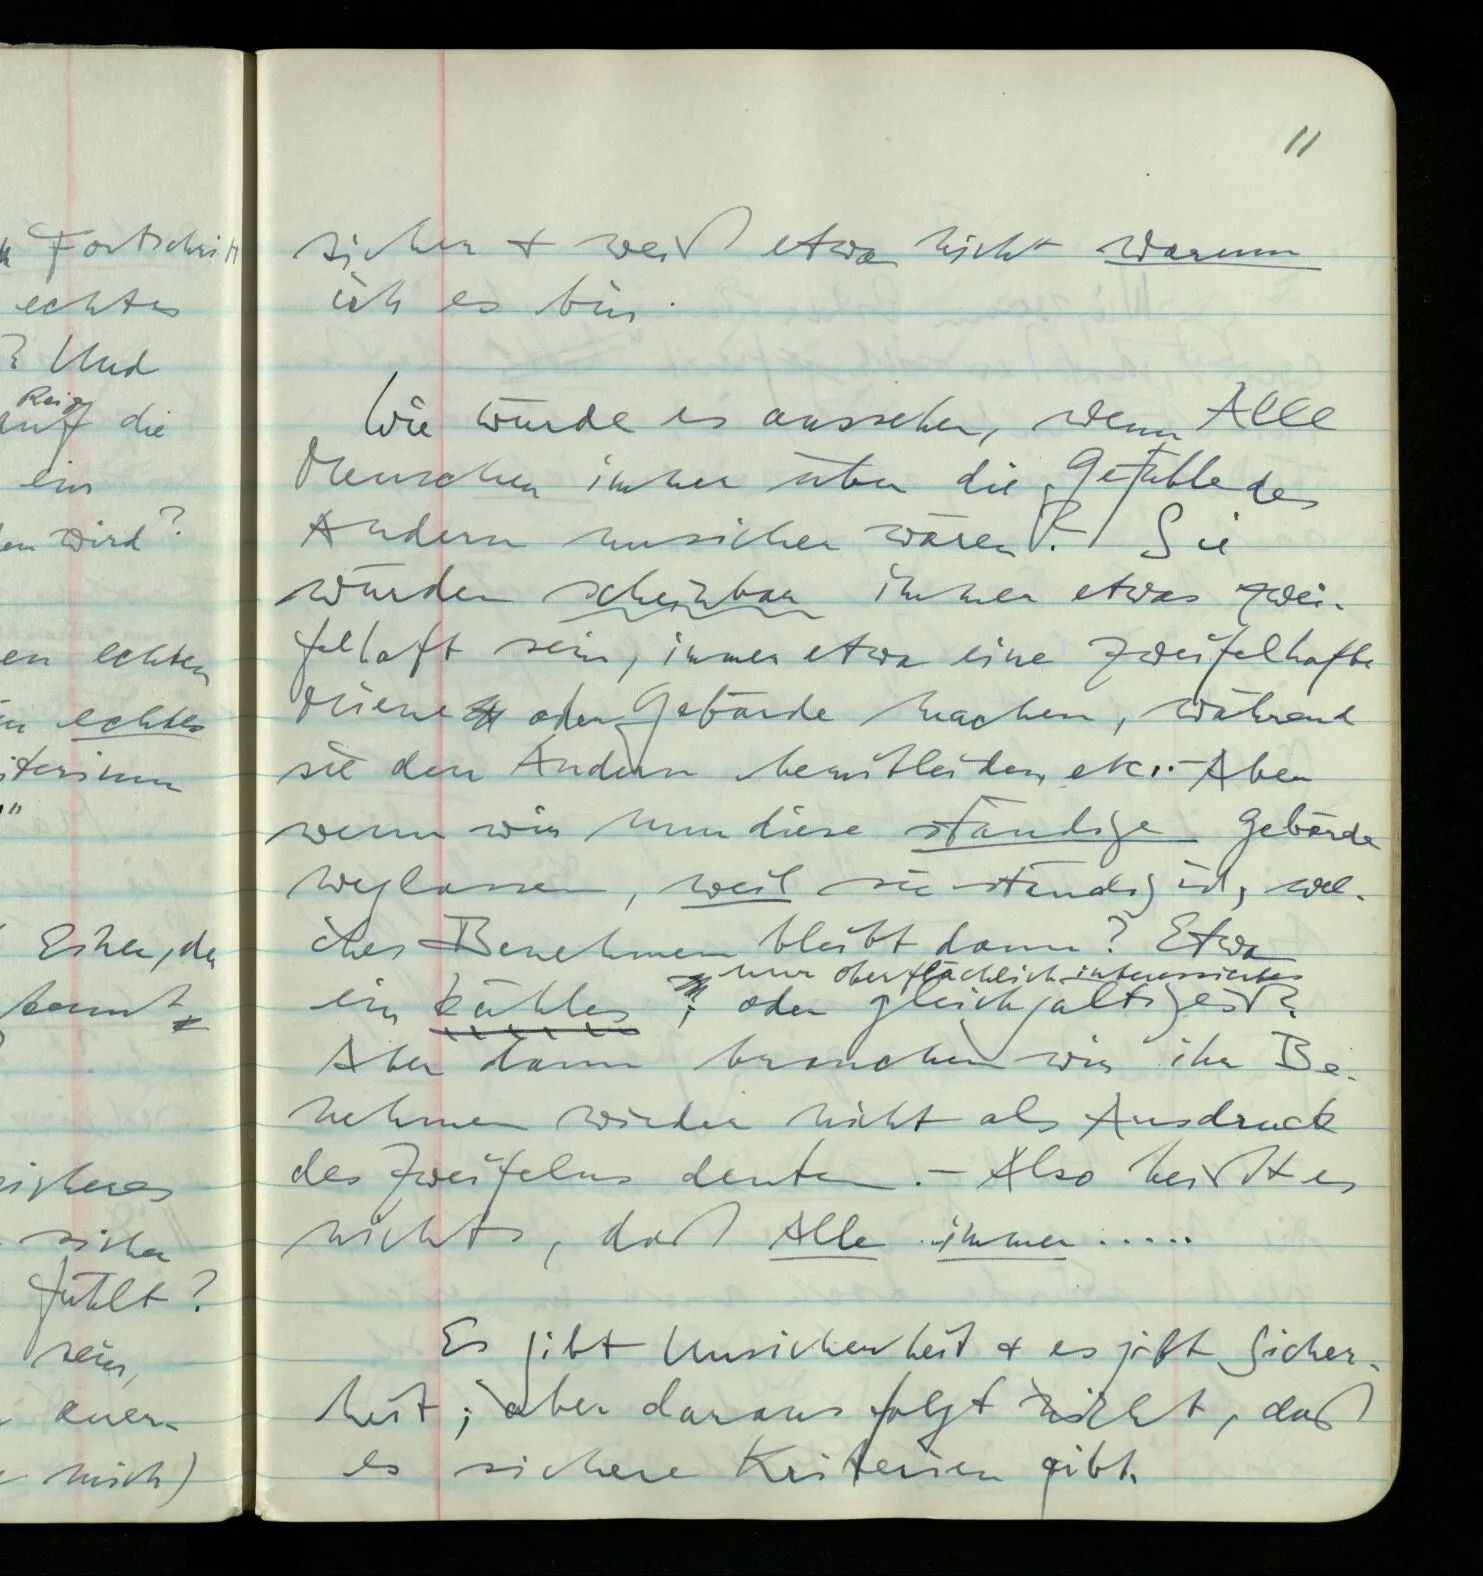 Fortschritt
echtes
? Und
Reiz
auf die
ein
den wird?
en echten
echtes
iterium
"
Eher, der
kannt
sicheres
sicher
fühlt?
sein,
aner-
mich)
11
sicher & weiß etwa nicht warum
ich es bin.
Wie würde es aussehen, wenn Alle
Menschen immer über die Gefühle des
Andern unsicher wären? Sie
würden scheinbar immer etwas zwei-
felhaft sein, immer etwa eine zweifelhafte
Miene oder Gebärde machen, während
sie den Andern bemitleiden, etc.. – Aber
wenn wir nun diese ständige Gebärde
weglassen, weil sie ständig ist, wel-
ches Benehmen bleibt dann? Etwa
nur oberflächlich interessiertes
ein kühles, oder gleichgültiges?
Aber dann brauchen wir ihr Be-
nehmen wieder nicht als Ausdruck
des Zweifelns deuten. – Also heißt es
nichts, daß Alle immer .....
Es gibt Unsicherheit & es gibt Sicher-
heit; aber daraus folgt nicht, daß
es sichere Kriterien gibt.